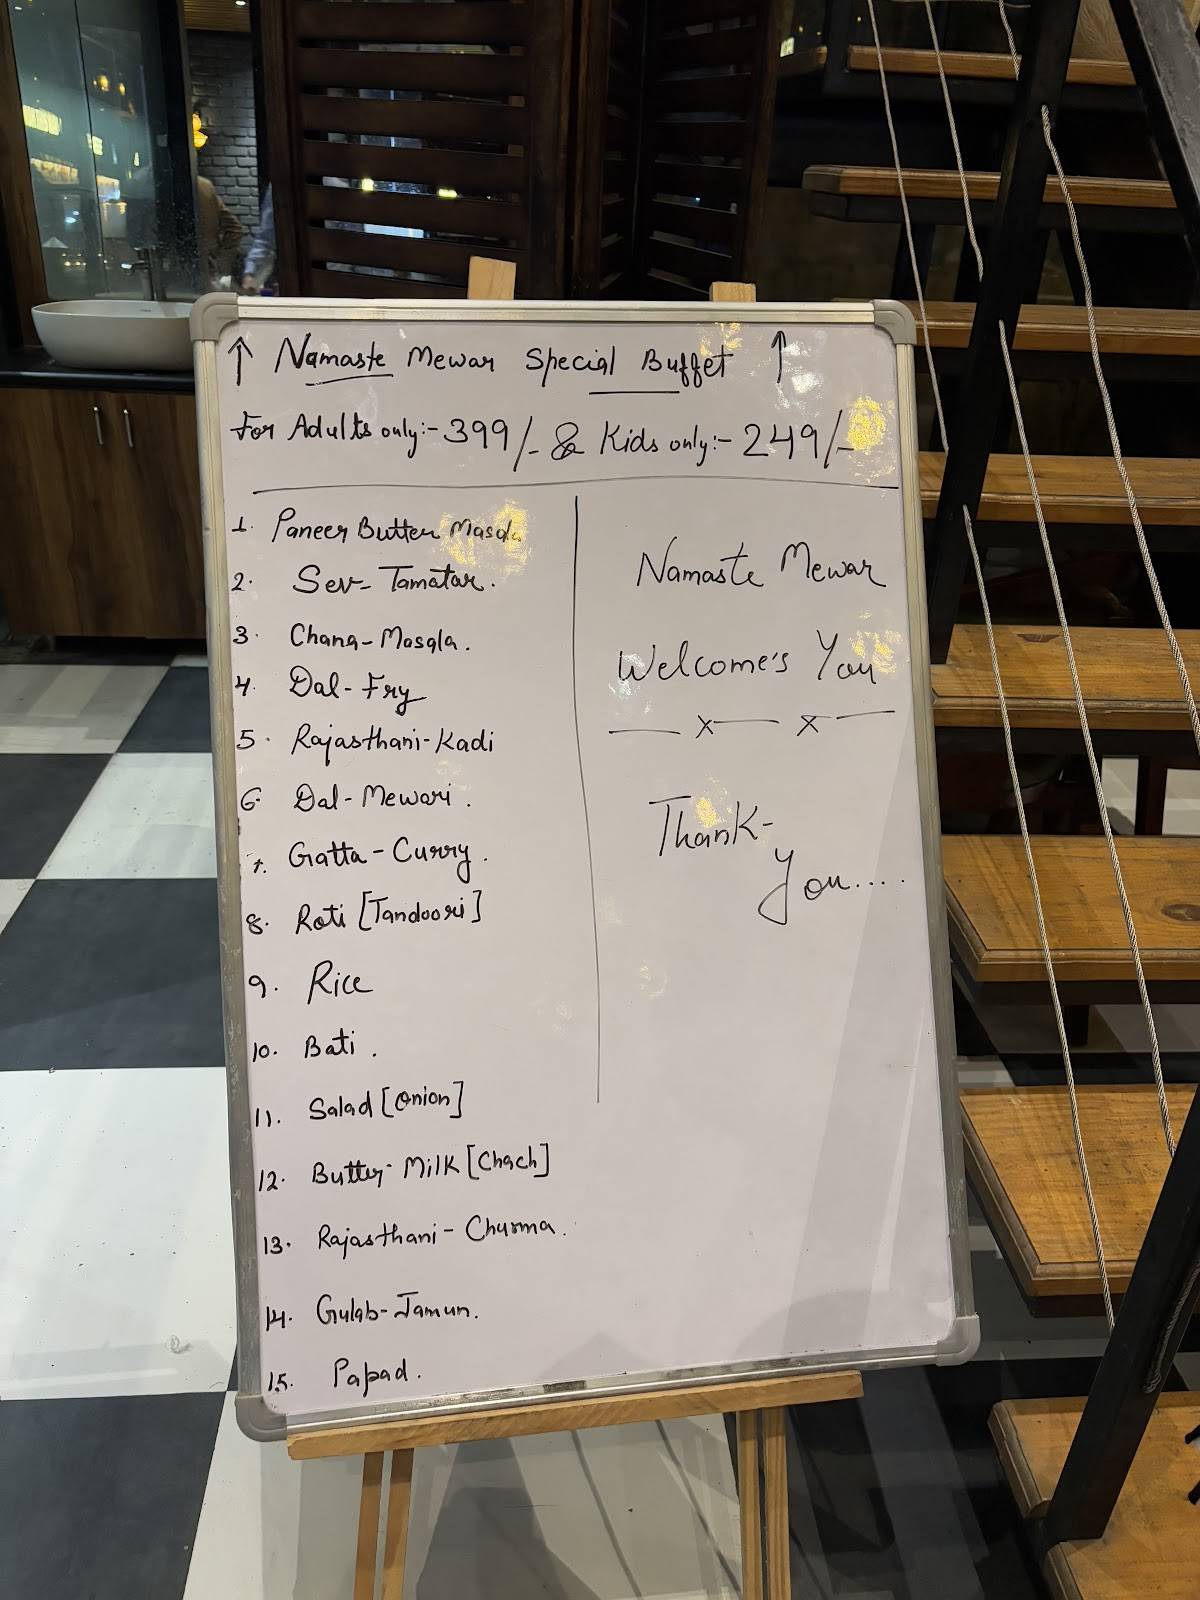 ↑ Namaste Mewar Special Buffet ↑
For Adults only:- 399/- & Kids only:- 249/-
1. Paneer Butter Masala
2. Sev- Tamatar.
3. Chana-Masala.
4. Dal-Fry
5. Rajasthani-Kadi
6. Dal-Mewari.
7. Gatta-Curry.
8. Roti [Tandoori]
9. Rice
10. Bati.
11. Salad [Onion]
12. Butter-Milk [Chach]
13. Rajasthani-Churma.
14. Gulab-Jamun.
15. Papad.
Namaste Mewar
Welcome's You
— x — x —
Thank-
You....